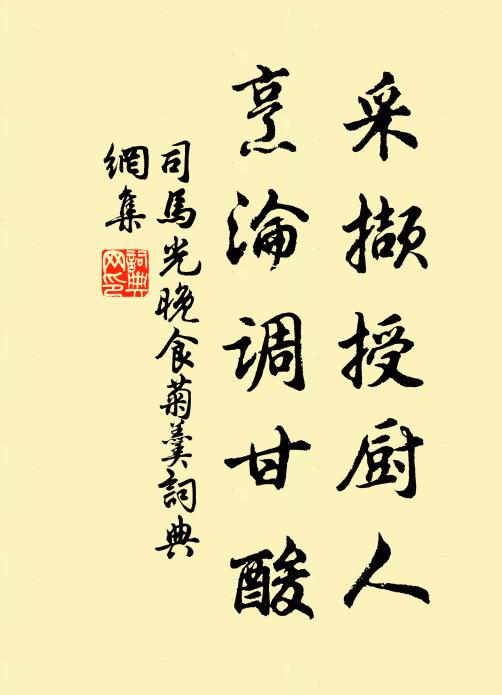 采擷授厨人
烹淪调甘酸
司馬光晚食菊羹詞典
網集
詞典网印